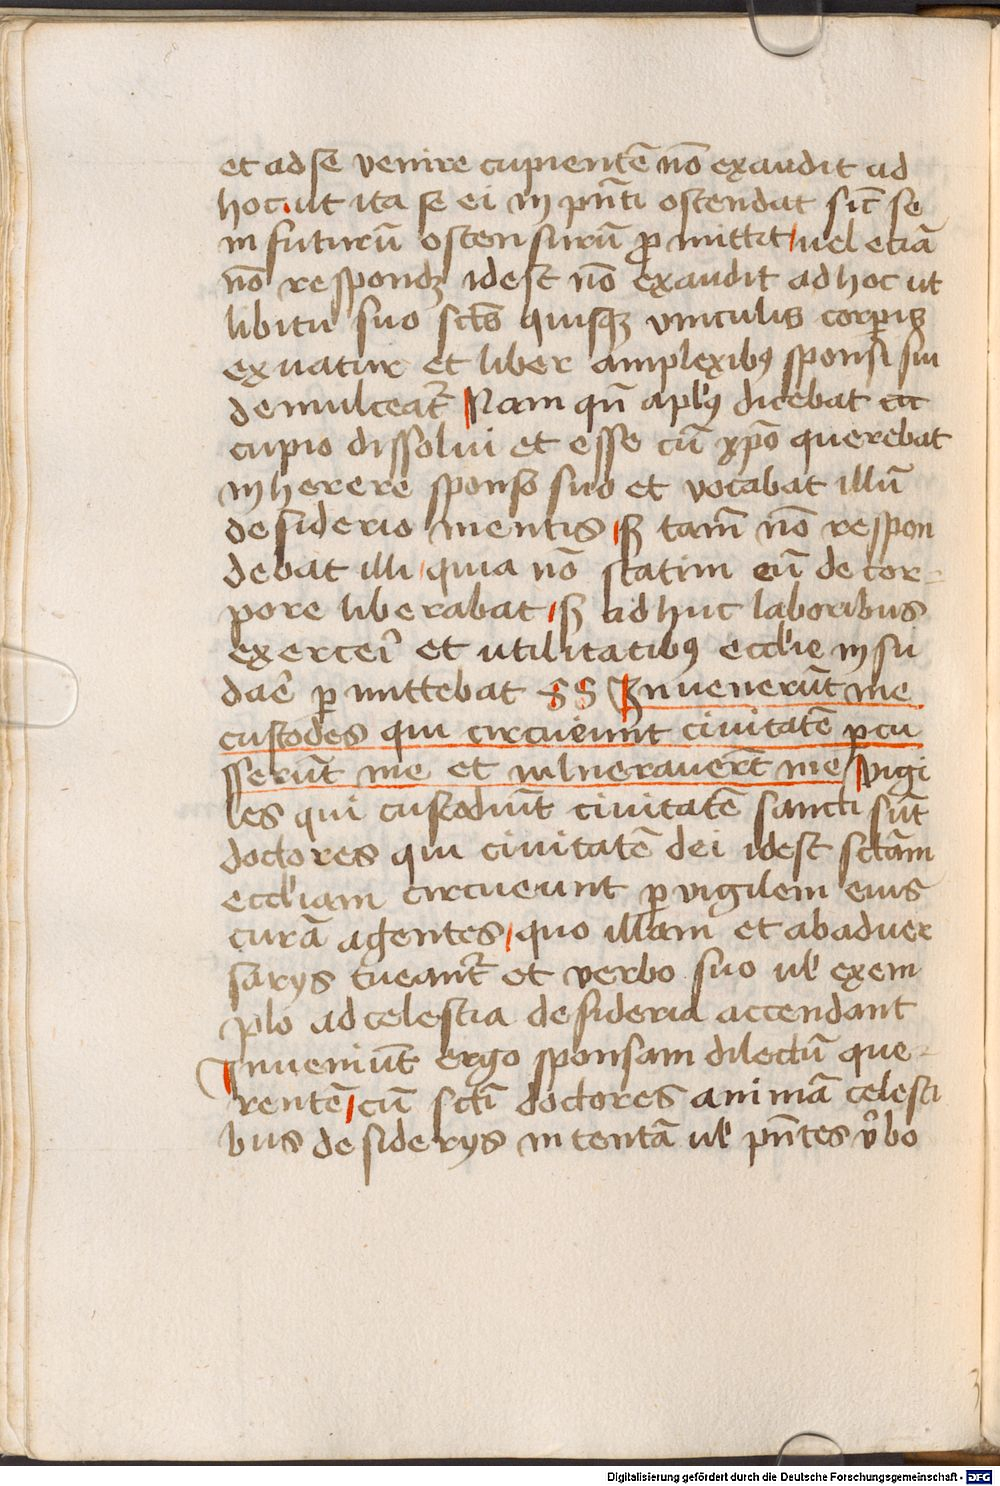 et ad se venire cupientē nō exaudit ad
hoc ut ita se ei in pn̄ti ostendat sic̄ se
in futurū ostensurū ꝓmittit uel etiā
nō respondꝫ idest nō exaudit ad hoc ut
libitu suo sct̄s quisqꝫ vinculis corꝑis
exuatur et liber amplexibꝰ sponsi sui
demulceat᷑ Nam qn̄ apl̓ꝰ dicebat
cupio dissolui et esse cū xp̄o querebat
inherere sponso suo et vocabat illū
desiderio mentis sꝫ tam̄ nō respon
debat illi quia nō statim eū de cor-
pore liberabat sꝫ adhuc laboribus
exercei᷑ et utilitatibꝰ eccl̓ie insu
dae᷑ ꝑmittebat SS Inuenerūt me
custodes qui circueiunt ciuitatē ꝑcu
sserūt me et vulnerauer̄t me Vigi
les qui custodiūt ciuitatē sancti sūt
doctores qui ciuitatē dei idest sctām
eccl̓iam circueunt ꝑvigilem eius
curā agentes quo illam et ab aduer
sarijs tueant᷑ et verbo suo ul̓ exem
plo ad celestia desideria accendant
Inueniūt ergo sponsam dilectū que-
rentē cū sct̄i doctores animā celesti
bus desiderijs intentā ul̓ pn̄tes v̓bo
Digitalisierung gefördert durch die Deutsche Forschungsgemeinschaft - DFG